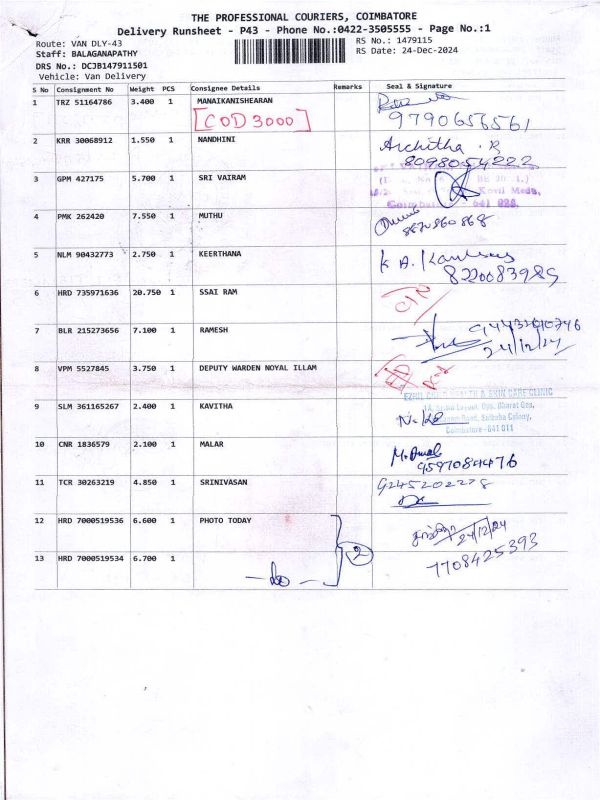 THE PROFESSIONAL COURIERS, COIMBATORE
Delivery Runsheet - P43 - Phone No.:0422-3505555 - Page No.:1
Route: VAN DLY-43 RS No.: 1479115
Staff: BALAGANAPATHY RS Date: 24-Dec-2024
DRS No.: DCJB147911501
Vehicle: Van Delivery
S No Consignment No Weight PCS Consignee Details Remarks Seal & Signature
1 TRZ 51164786 3.400 1 MANAIKANISHEARAN
[COD 3000] 9790656561
2 KRR 30068912 1.550 1 NANDHINI Architha . R
8098054222
3 GPM 427175 5.700 1 SRI VAIRAM
4 PMK 262420 7.550 1 MUTHU
5 NLM 90432773 2.750 1 KEERTHANA
8220083989
6 HRD 735971636 20.750 1 SSAI RAM
7 BLR 215273656 7.100 1 RAMESH
24/12/24
8 VPM 5527845 3.750 1 DEPUTY WARDEN NOYAL ILLAM
9 SLM 361165267 2.400 1 KAVITHA
Coimbatore - 641 011
10 CNR 1836579 2.100 1 MALAR
11 TCR 30263219 4.850 1 SRINIVASAN 9245202278
12 HRD 7000519536 6.600 1 PHOTO TODAY
24/12/24
13 HRD 7000519534 6.700 1 2 7708425393